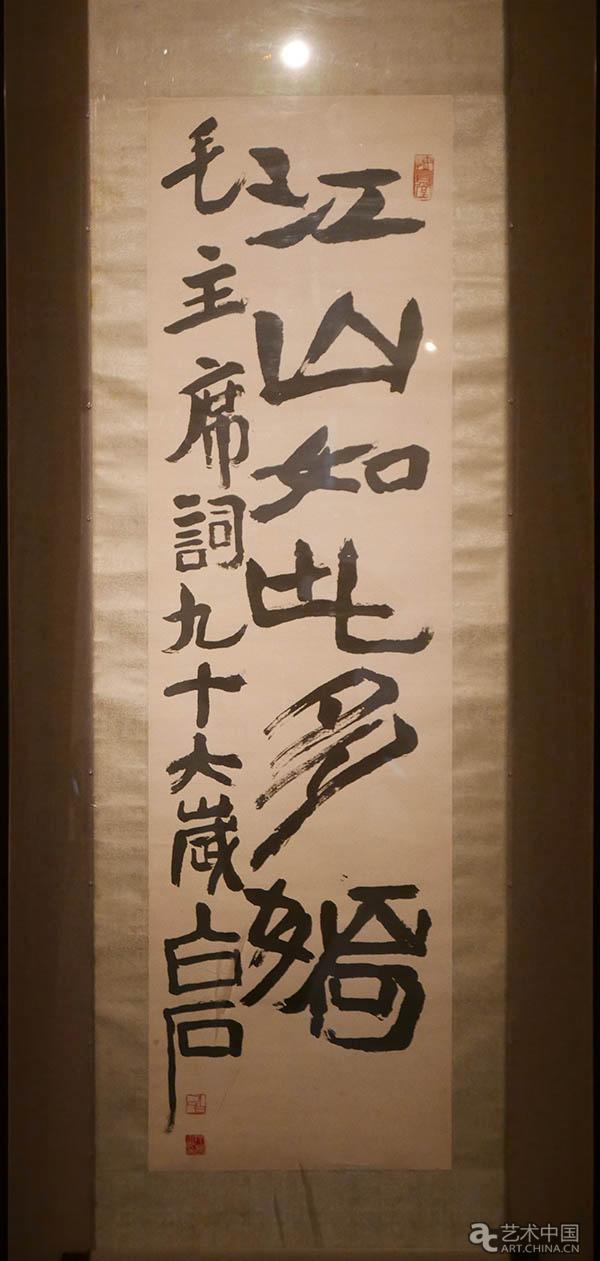 江山如此多嬌
毛主席詞九十六歲白石
艺术中国
ART.CHINA.CN